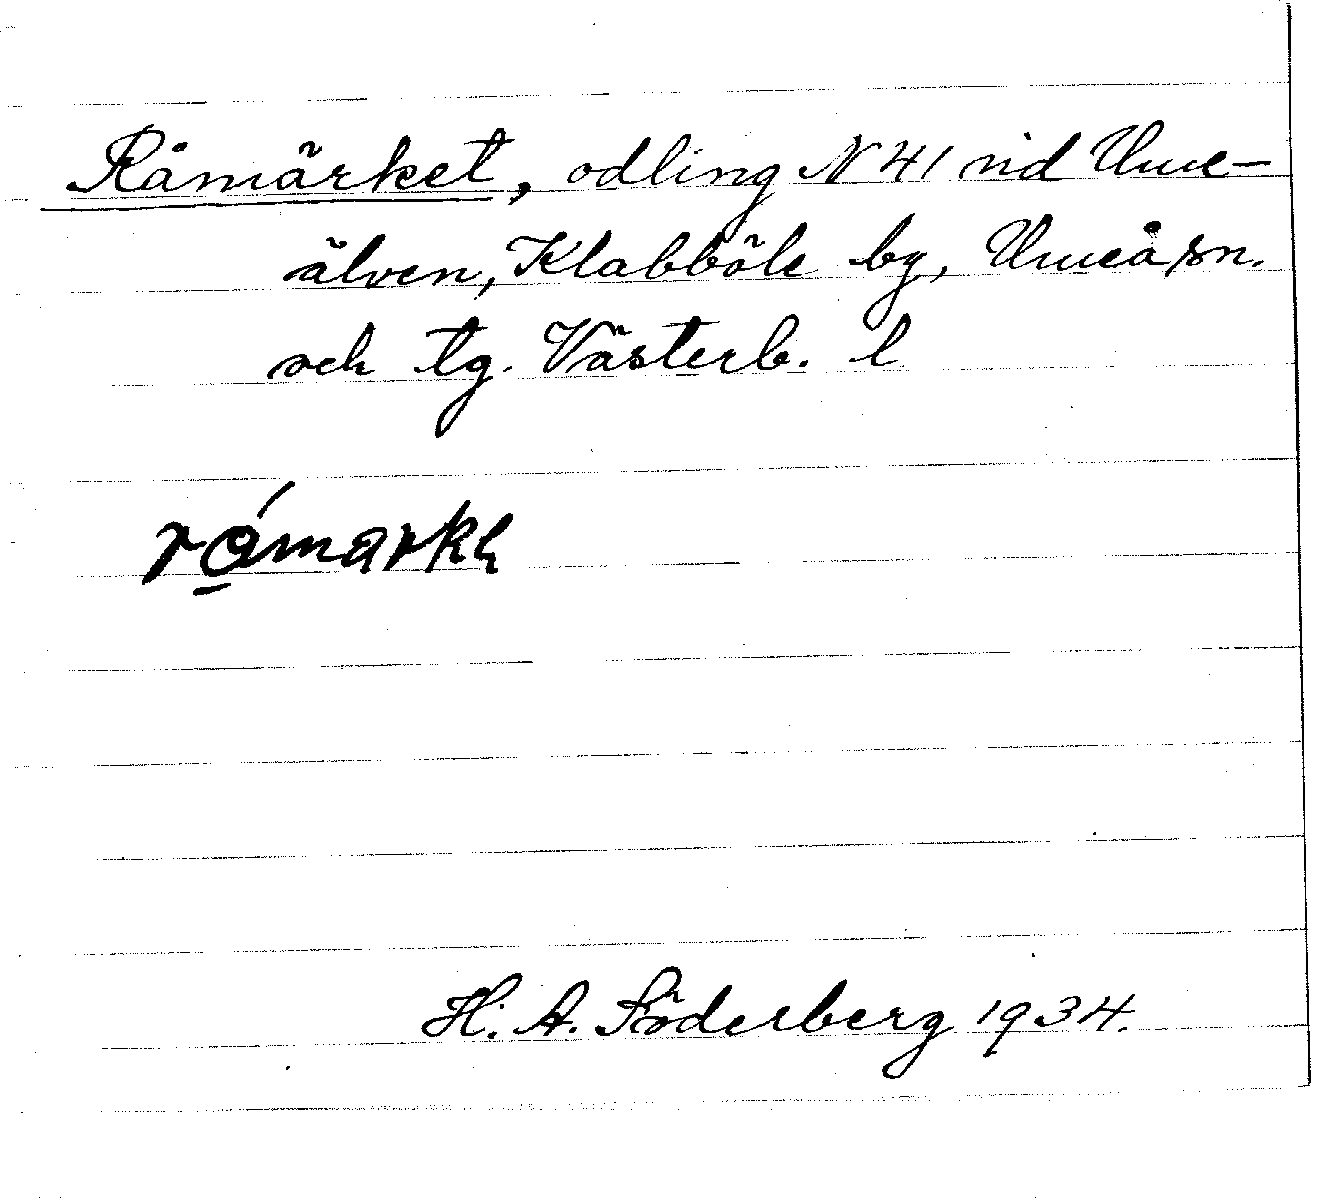 Råmärket, odling N 41 vid Ume-
älven, Klabböle by, Umeå sn.
och tg. Västerb. l
råmarkɩ
H. A. Söderberg 1934.